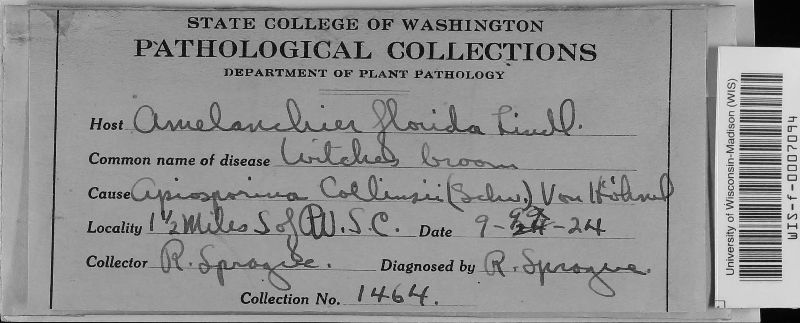 STATE COLLEGE OF WASHINGTON
PATHOLOGICAL COLLECTIONS
DEPARTMENT OF PLANT PATHOLOGY
Host Amelanchier florida Lindl.
Common name of disease Witches broom
Cause Apiosporina Collinsii (Schw.) Von Höhnel
Locality 1 1/2 Miles S of W.S.C. Date 9- -24
Collector R. Sprague. Diagnosed by R. Sprague.
Collection No. 1464.
University of Wisconsin-Madison (WIS)
WIS-f-0007094